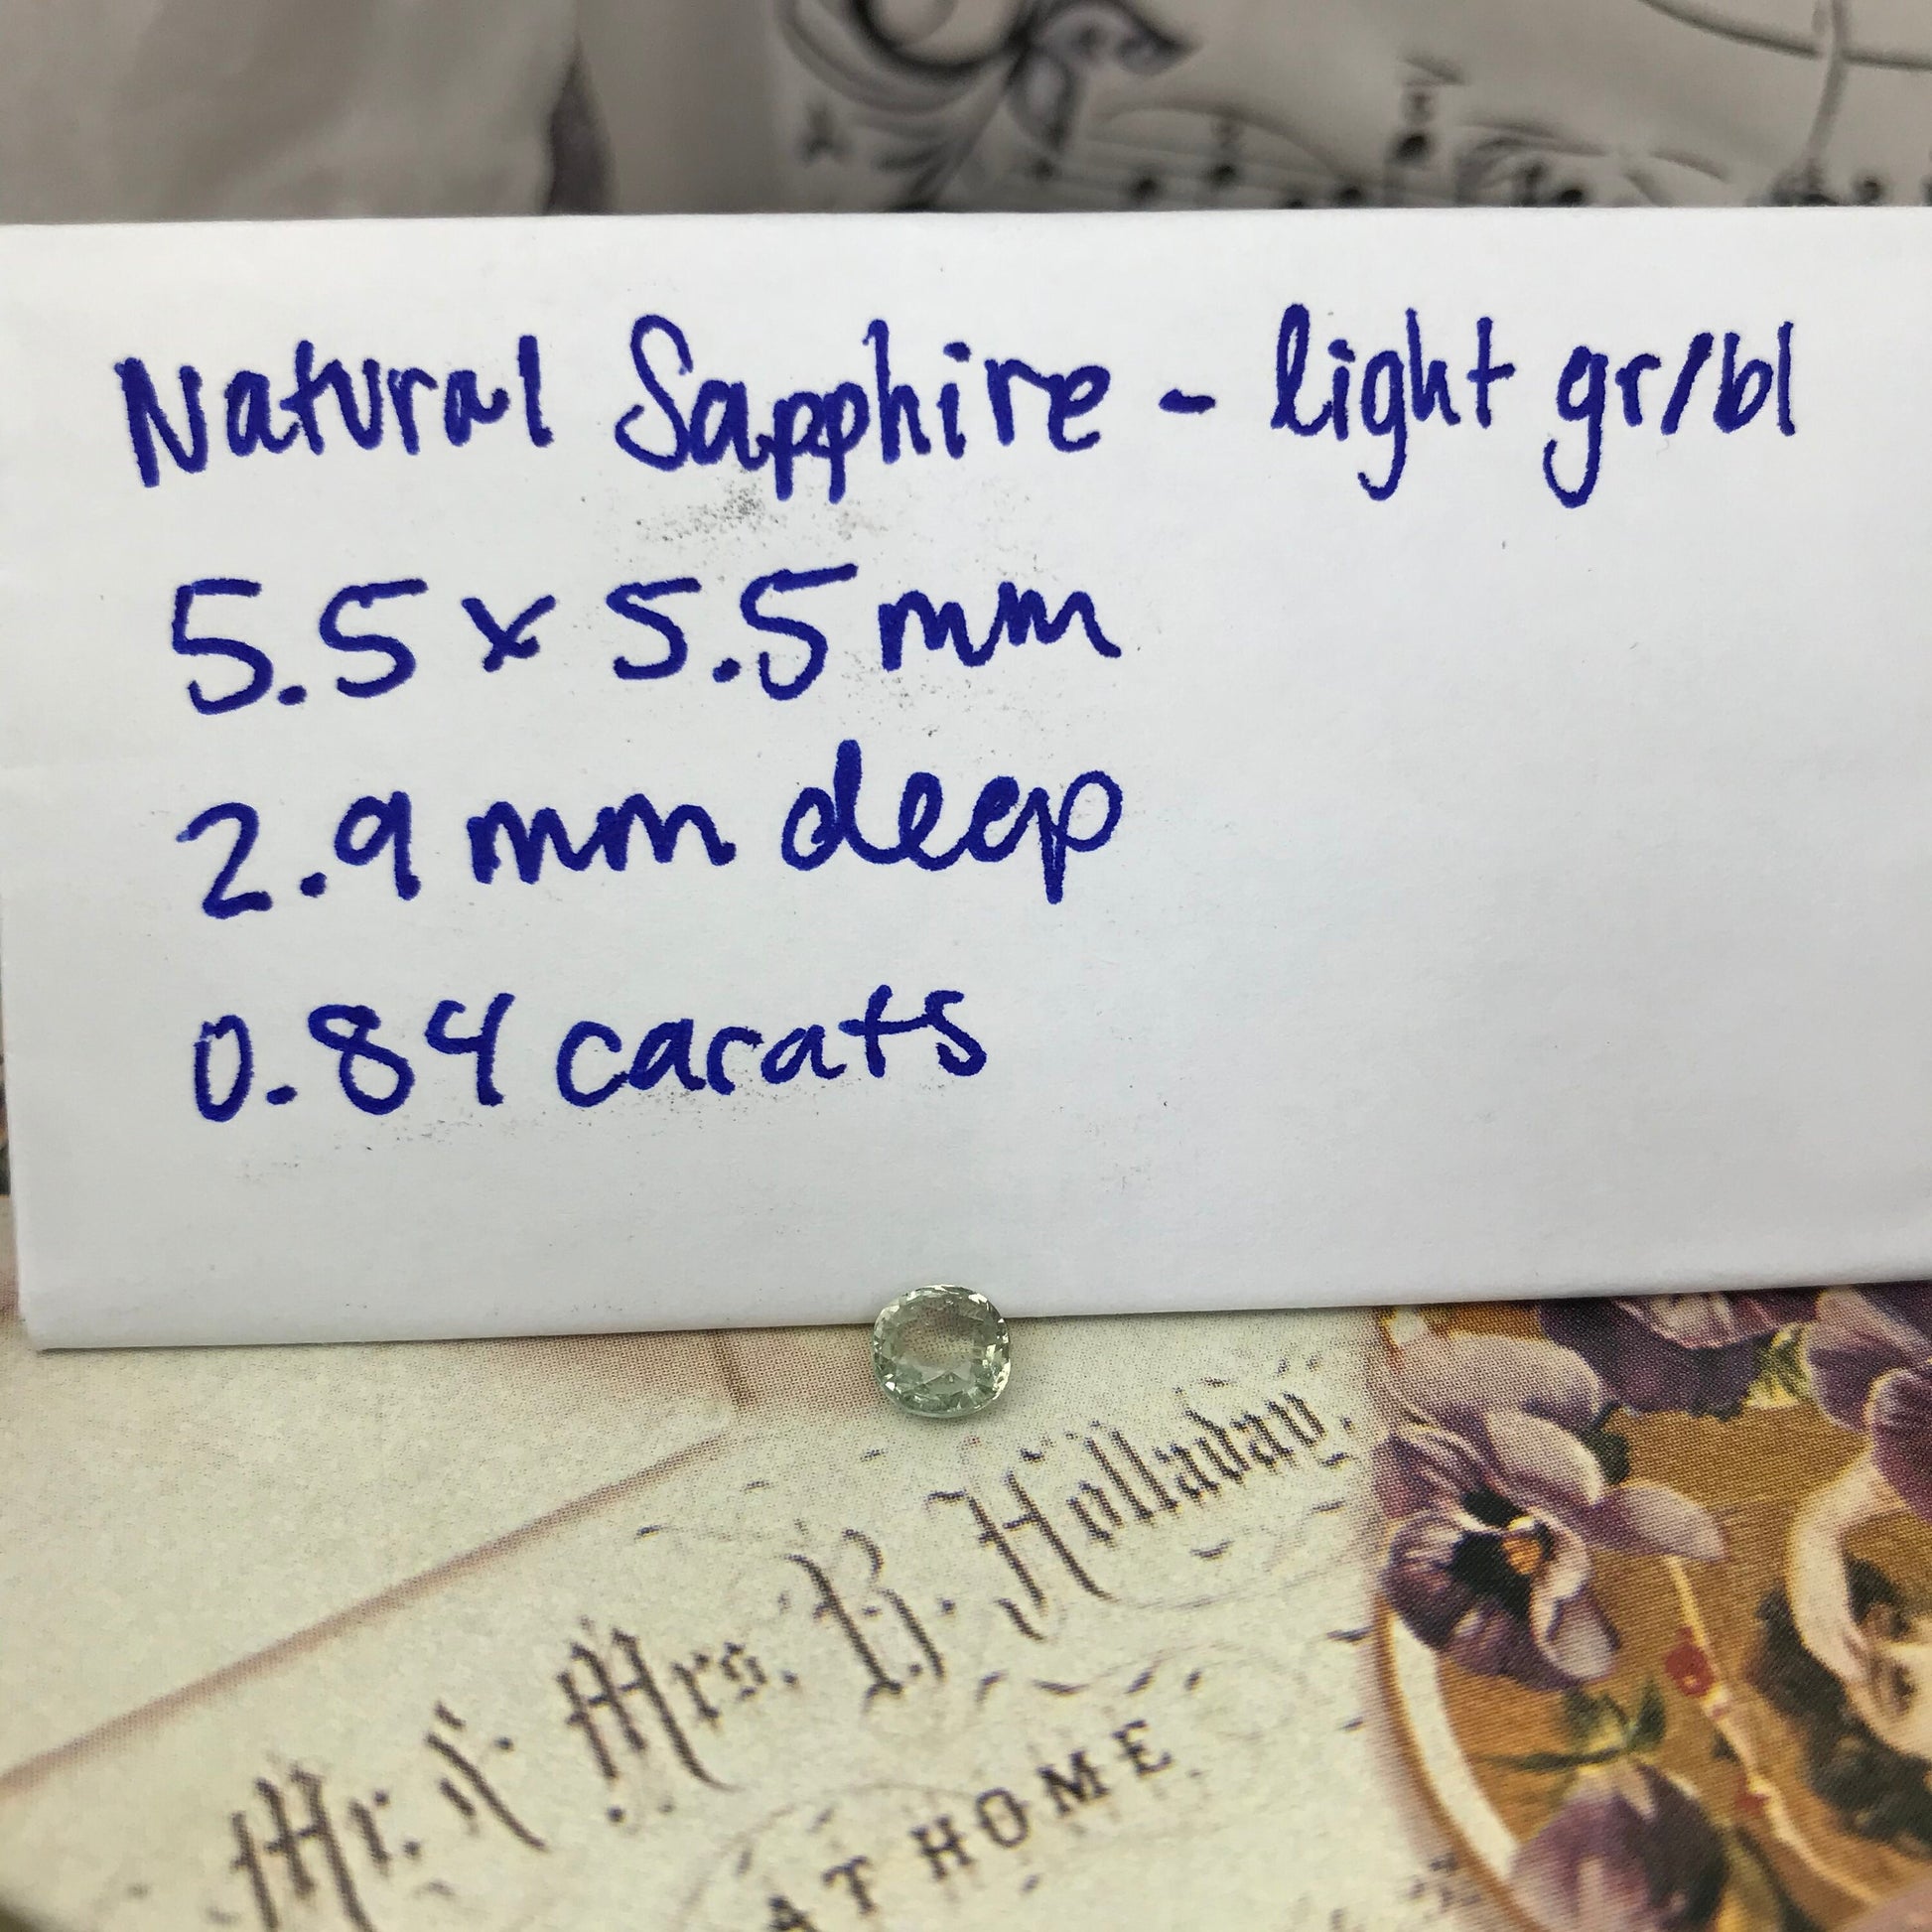 Natural Sapphire - light gr/bl
5.5 x 5.5 mm
2.9 mm deep
0.84 carats
Mr. & Mrs. B. Holladay.
AT HOME